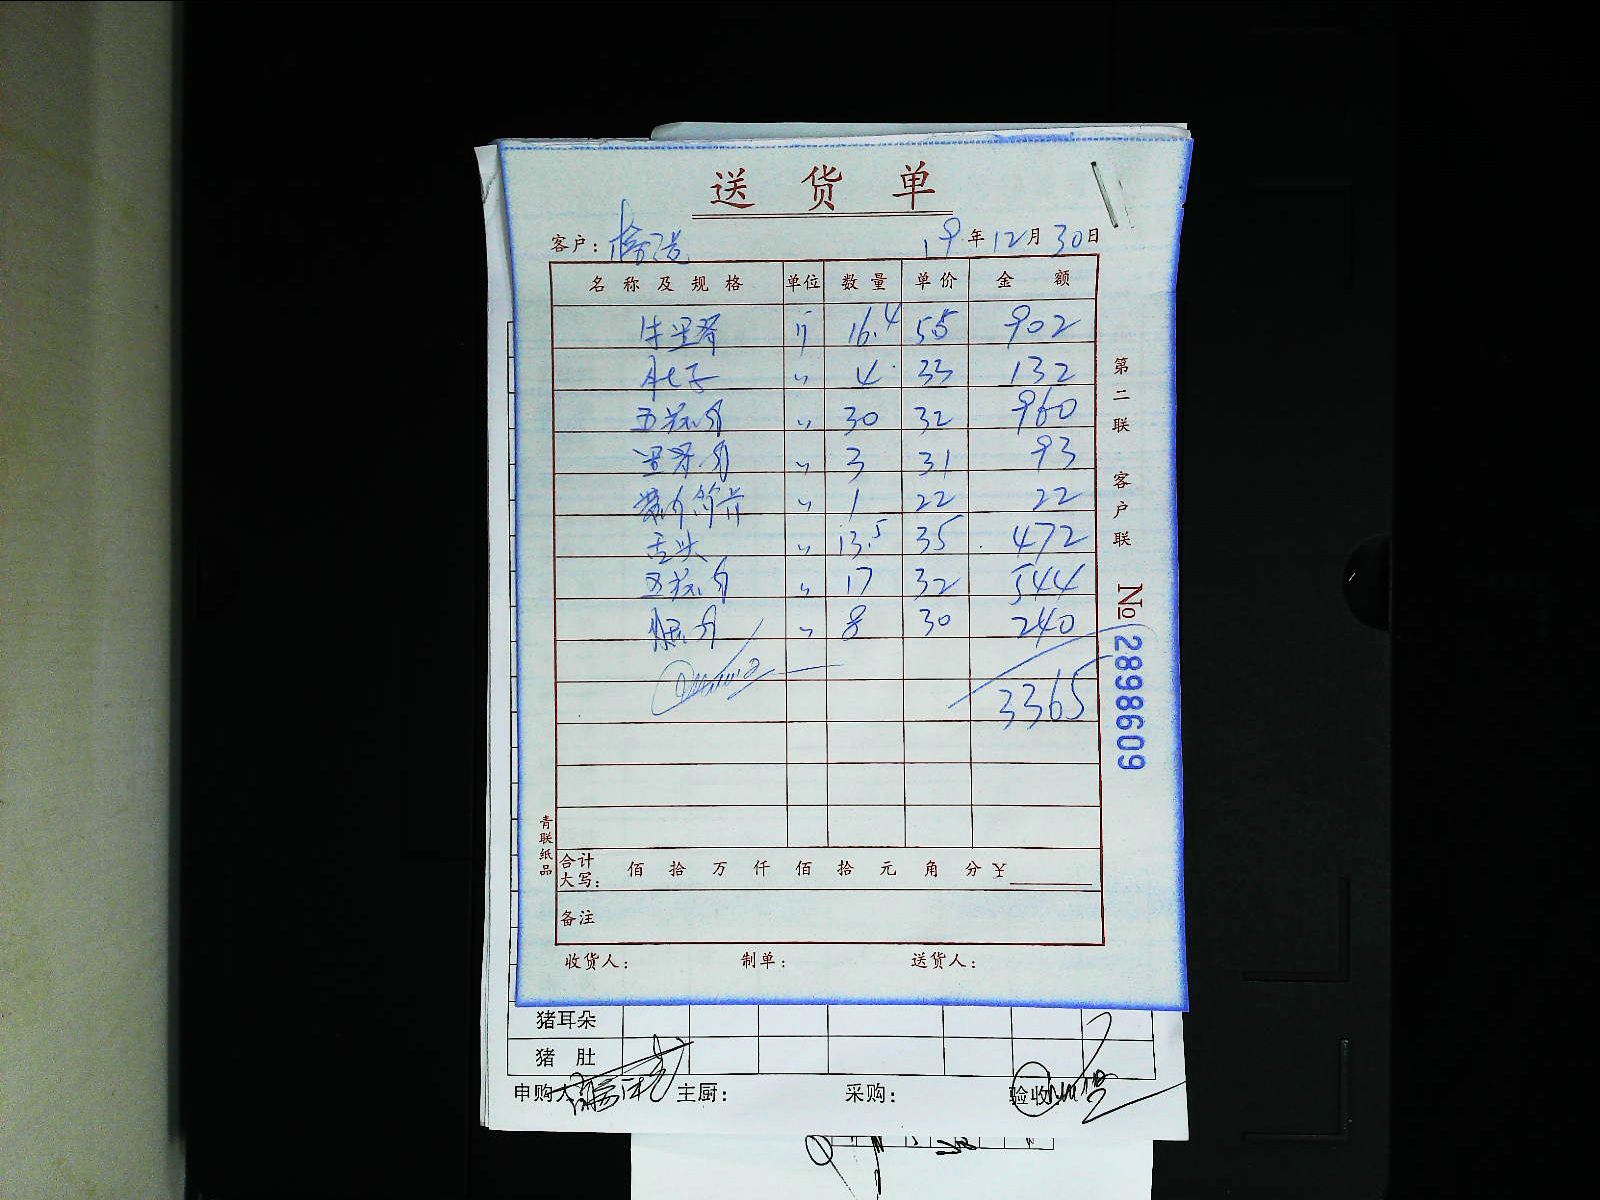 送货单
客户: 19年12月30日
名称及规格 单位 数量 单价 金额
牛里脊 斤 16.4 55 902
肚子 〃 4 33 132
五花肉 〃 30 32 960
里脊肉 〃 3 31 93
〃 1 22 22
舌头 〃 13.5 35 472
五花肉 〃 17 32 544
肉 〃 8 30 240
3365
合计大写: 佰 拾 万 仟 佰 拾 元 角 分 ¥
备注
收货人: 制单: 送货人:
第二联 客户联
No 2898609
青联纸品
猪耳朵
猪肚
申购 主厨: 采购: 验收